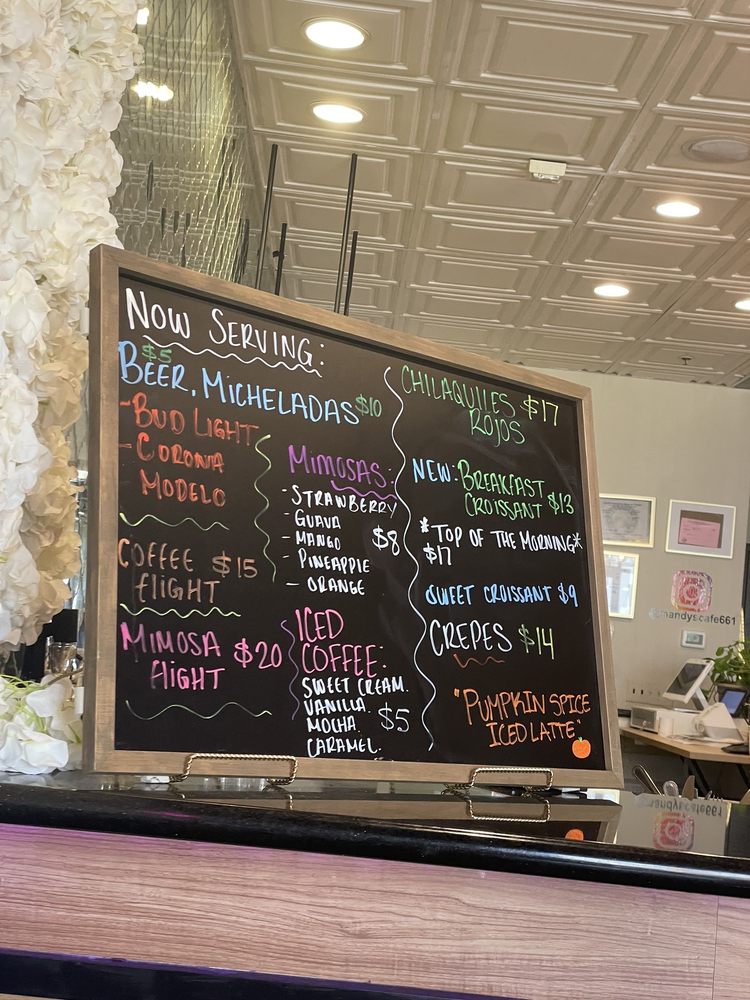 NOW SERVING:
$5
BEER, MICHELADAS $10
- BUD LIGHT
- CORONA
MODELO
COFFEE $15
flIGHT
MIMOSA $20
flIGHT
MIMOSAS:
- STRAWBERRY
- GUAVA
- MANGO $8
- PINEAPPLE
- ORANGE
ICED
COFFEE:
SWEET CREAM.
VANILLA.
MOCHA $5
CARAMEL.
CHILAQUILES $17
ROJOS
NEW: BREAKFAST
CROISSANT $13
*TOP OF THE MORNING*
$17
SWEET CROISSANT $9
CREPES $14
"PUMPKIN SPICE
ICED LATTE"
@mandyscafe661